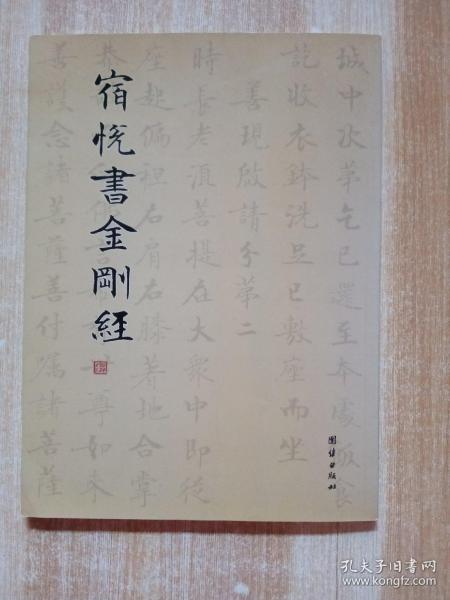 宿悦書金剛經
城中次第乞已還至本處飯食
訖收衣鉢洗足已敷座而坐
善現啟請分第二
時長老須菩提在大衆中即從
座起偏袒右肩右膝著地合掌
善護念諸菩薩善付囑諸菩薩
團结出版社
孔夫子旧书网
www.kongfz.com